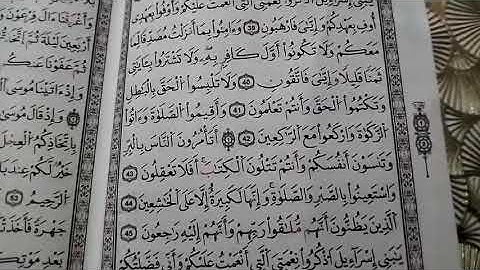 يَٰبَنِي إِسْرَآءِيلَ اَذْكُرُوا نِعْمَتِيَ اَلتِي أَنْعَمْتُ عَلَيْكُمْ وَأَوْفُوا بِعَهْدِي
أُوفِ بِعَهْدِكُمْ وَإِيَّٰيَ فَارْهَبُونِ 39 وَءَامِنُوا بِمَا أَنزَلْتُ مُصَدِّقاً لِّمَا
مَعَكُمْ وَلَا تَكُونُوا أَوَّلَ كَافِرٍ بِهِ وَلَا تَشْتَرُوا بِـَٔايَٰتِي
ثَمَناً قَلِيلاً وَإِيَّٰيَ فَاتَّقُونِ 40 وَلَا تَلْبِسُوا الْحَقَّ بِالْبَٰطِلِ
وَتَكْتُمُوا الْحَقَّ وَأَنتُمْ تَعْلَمُونَ 41 وَأَقِيمُوا الصَّلَوٰةَ وَءَاتُوا
الزَّكَوٰةَ وَارْكَعُوا مَعَ الرَّٰكِعِينَ 42 أَتَأْمُرُونَ النَّاسَ بِالْبِرِّ
وَتَنسَوْنَ أَنفُسَكُمْ وَأَنتُمْ تَتْلُونَ الْكِتَٰبَ أَفَلَا تَعْقِلُونَ 43
وَاسْتَعِينُوا بِالصَّبْرِ وَالصَّلَوٰةِ وَإِنَّهَا لَكَبِيرَةٌ إِلَّا عَلَى الْخَٰشِعِينَ 44
الَّذِينَ يَظُنُّونَ أَنَّهُم مُّلَٰقُوا رَبِّهِمْ وَأَنَّهُمْ إِلَيْهِ رَٰجِعُونَ 45
يَٰبَنِي إِسْرَآءِيلَ اَذْكُرُوا نِعْمَتِيَ اَلتِي أَنْعَمْتُ عَلَيْكُمْ وَأَنِّي فَضَّلْتُكُمْ
وَأَغْرَقْنَا ءَالَ فِرْعَوْنَ وَ
أَرْبَعِينَ لَيْلَةً ثُمَّ
ثُمَّ عَفَوْنَا عَنكُم
وَإِذَ اتَيْنَا مُوسَى
وَإِذْ قَالَ مُوسَىٰ
بِاتِّخَاذِكُمُ الْعِجْلَ
خَيْرٌ لَّكُمْ عِندَ
الرَّحِيمُ 53
جَهْرَةً فَأَخَذَتْ
بَعْدِ مَوْتِكُمْ